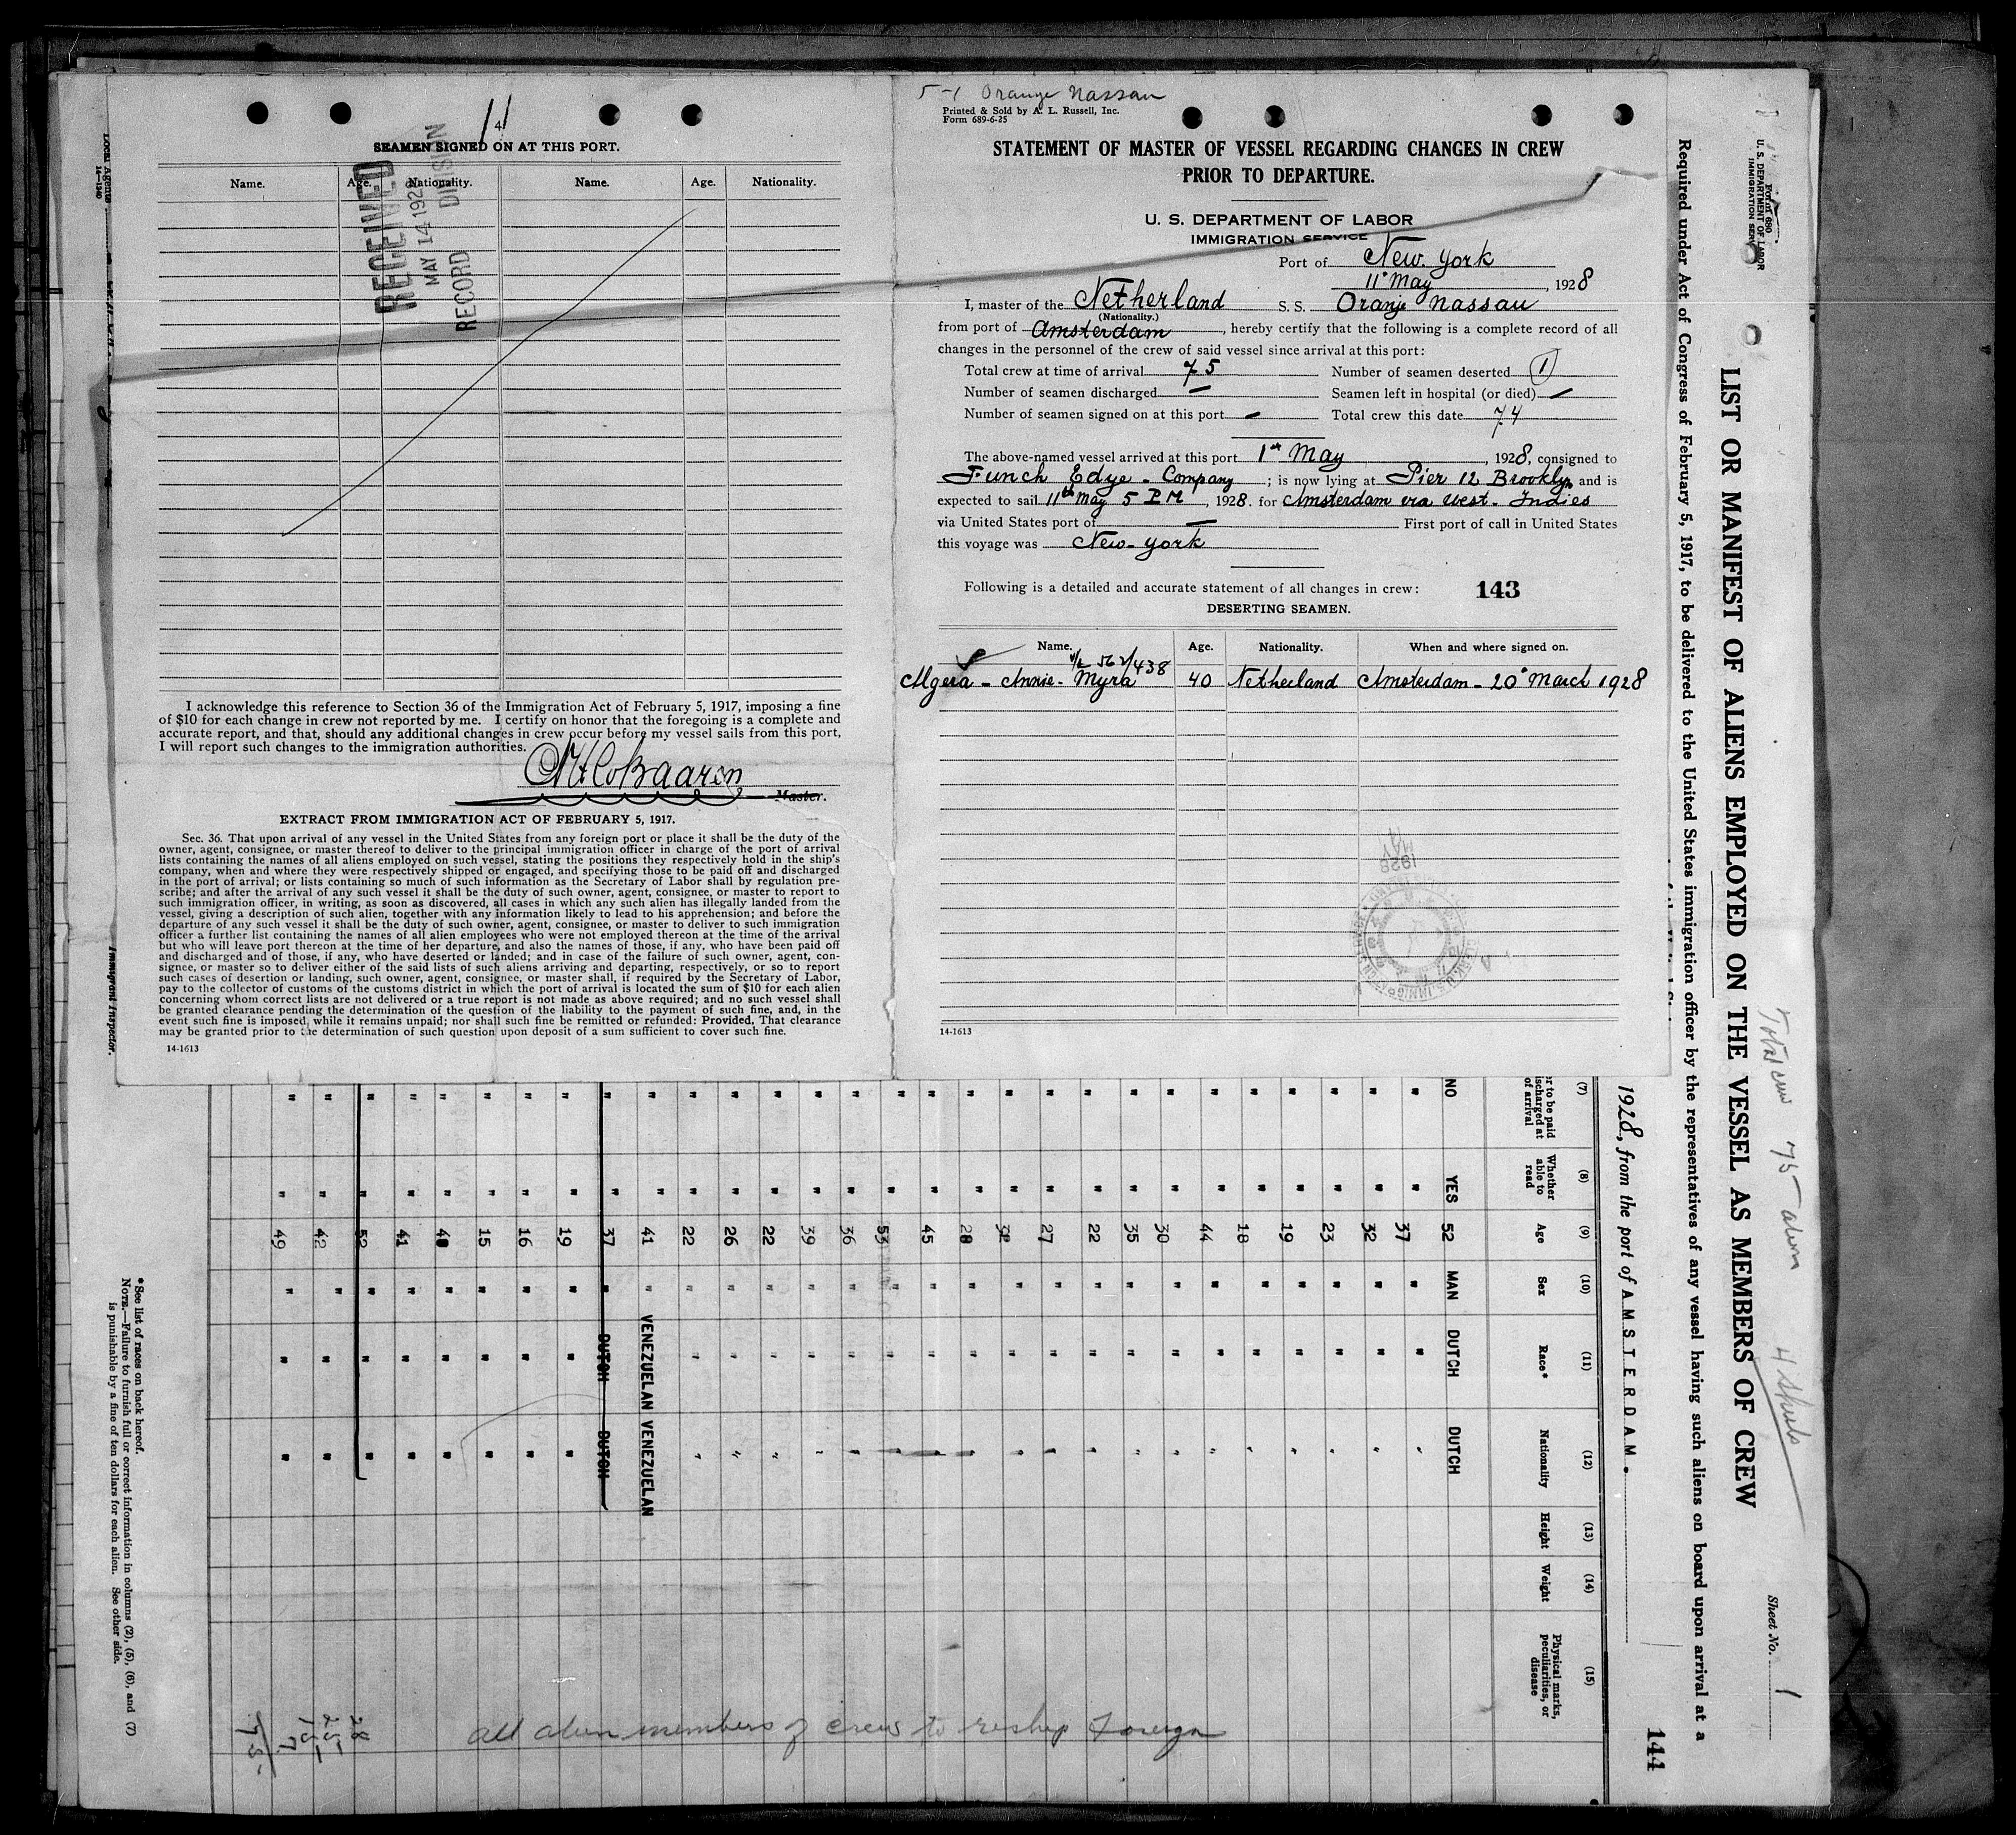 SEAMEN SIGNED ON AT THIS PORT.
Name. Age. Nationality. Name. Age. Nationality.
RECEIVED
MAY 14 1928
RECORD DIVISION
I acknowledge this reference to Section 36 of the Immigration Act of February 5, 1917, imposing a fine
of $10 for each change in crew not reported by me. I certify on honor that the foregoing is a complete and
accurate report, and that, should any additional changes in crew occur before my vessel sails from this port,
I will report such changes to the immigration authorities.
Master.
EXTRACT FROM IMMIGRATION ACT OF FEBRUARY 5, 1917.
Sec. 36. That upon arrival of any vessel in the United States from any foreign port or place it shall be the duty of the
owner, agent, consignee, or master thereof to deliver to the principal immigration officer in charge of the port of arrival
lists containing the names of all aliens employed on such vessel, stating the positions they respectively hold in the ship's
company, when and where they were respectively shipped or engaged, and specifying those to be paid off and discharged
in the port of arrival; or lists containing so much of such information as the Secretary of Labor shall by regulation pre-
scribe; and after the arrival of any such vessel it shall be the duty of such owner, agent, consignee, or master to report to
such immigration officer, in writing, as soon as discovered, all cases in which any such alien has illegally landed from the
vessel, giving a description of such alien, together with any information likely to lead to his apprehension; and before the
departure of any such vessel it shall be the duty of such owner, agent, consignee, or master to deliver to such immigration
officer a further list containing the names of all alien employees who were not employed thereon at the time of the arrival
but who will leave port thereon at the time of her departure, and also the names of those, if any, who have been paid off
and discharged and of those, if any, who have deserted or landed; and in case of the failure of such owner, agent, con-
signee, or master so to deliver either of the said lists of such aliens arriving and departing, respectively, or so to report
such cases of desertion or landing, such owner, agent, consignee, or master shall, if required by the Secretary of Labor,
pay to the collector of customs of the customs district in which the port of arrival is located the sum of $10 for each alien
concerning whom correct lists are not delivered or a true report is not made as above required; and no such vessel shall
be granted clearance pending the determination of the question of the liability to the payment of such fine, and, in the
event such fine is imposed, while it remains unpaid; nor shall such fine be remitted or refunded: Provided, That clearance
may be granted prior to the determination of such question upon deposit of a sum sufficient to cover such fine.
14-1613
5-1 Orange Nassau
Printed & Sold by A. L. Russell, Inc.
Form 689-6-25
STATEMENT OF MASTER OF VESSEL REGARDING CHANGES IN CREW
PRIOR TO DEPARTURE.
U. S. DEPARTMENT OF LABOR
IMMIGRATION SERVICE
Port of New. York
11° May, 1928
I, master of the Netherland S. S. Oranje Nassau
(Nationality.)
from port of Amsterdam, hereby certify that the following is a complete record of all
changes in the personnel of the crew of said vessel since arrival at this port:
Total crew at time of arrival 75 Number of seamen deserted 1
Number of seamen discharged — Seamen left in hospital (or died) —
Number of seamen signed on at this port - Total crew this date 74
The above-named vessel arrived at this port 1st May, 1928, consigned to
Funch Edye - Company; is now lying at Pier 12 Brooklyn and is
expected to sail 11th May 5 P M, 1928. for Amsterdam via West-Indies
via United States port of — First port of call in United States
this voyage was New-York
Following is a detailed and accurate statement of all changes in crew: 143
DESERTING SEAMEN.
Name. Age. Nationality. When and where signed on.
562/438
Algera - Annie - Myra 40 Netherland Amsterdam - 20° March 1928
14-1613
Form 680
U. S. DEPARTMENT OF LABOR
IMMIGRATION SERV
Sheet No. 1
Total crew 75 - alien
LIST OR MANIFEST OF ALIENS EMPLOYED ON THE VESSEL AS MEMBERS OF CREW
Required under Act of Congress of February 5, 1917, to be delivered to the United States immigration officer by the representatives of any vessel having such aliens on board upon arrival at a
144
1928, from the port of AMSTERDAM.
(7) (8) (9) (10) (11) (12) (13) (14) (15)
er to be paid discharged at of arrival Whether able to read Age Sex Race* Nationality Height Weight Physical marks, peculiarities, or disease
NO YES 52 MAN DUTCH DUTCH
" " 37 " " "
" " 32 " " "
" " 23 " " "
" " 19 " " "
" " 18 " " "
" " 44 " " "
" " 30 " " "
" " 35 " " "
" " 22 " " "
" " 27 " " "
" " 32 " " "
" " 28 " " "
" " 45 " " "
" " 53 " " "
" " 36 " " "
" " 39 " " "
" " 22 " " "
" " 26 " " "
" " 22 " " "
" " 41 " VENEZUELAN VENEZUELAN
" " 37 " DUTCH DUTCH
" " 19 " " "
" " 16 " " "
" " 15 " " "
" " 40 " " "
" " 41 " " "
" " 52 " " "
" " 42 " " "
" " 49 " " "
All alien members of crew to reship foreign
28
25
15
7
75
*See list of races on back hereof.
NOTE.—Failure to furnish full or correct information in columns (2), (5), (6), and (7)
is punishable by a fine of ten dollars for each alien. See other side.
Local Agents
14-1240
Immigrant Inspector.